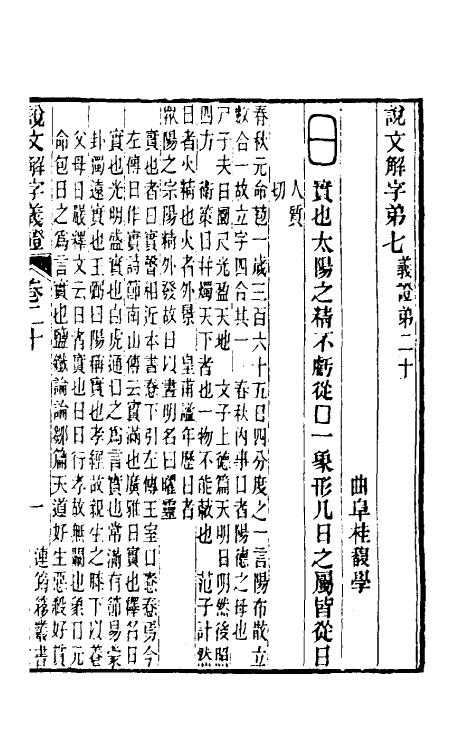 說文解字弟七 義證弟二十
曲阜桂馥學
日 實也太陽之精不虧從囗一象形凡日之屬皆從日
人質
切
春秋元命苞一歲三百六十五日四分度之一言陽布散立
數合一故立字四合其一 春秋內事日者陽德之母也
尸子夫日圓尺光盈天地 文子上德篇天明日明然後照
四方 衛策日幷燭天下者也一物不能蔽也 范子計然
日者火精也火者外景 皇甫謐年歷日者
眾陽之宗陽精外發故日以晝明名曰曜靈
實也者日實聲相近本書卷下引左傳王室日惷惷焉今
左傳日作實詩節南山傳云實滿也廣雅日實也釋名日
實也光明盛實也白虎通日之為言實也常滿有節易蒙
卦獨遠實也王弼曰陽稱實也孝經故親生之膝下以養
父母日嚴釋文云日者實也日日行孝故無闕也象日元
命包日之為言實也鹽鐵論論鄒篇天道好生惡殺好賞
說文解字義證 卷二十 一 連筠簃叢書